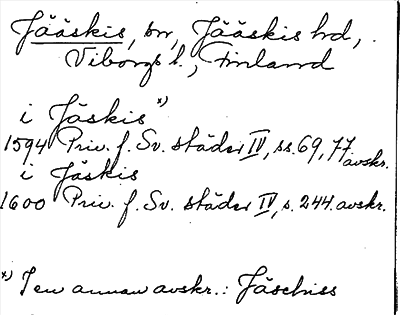 Jääskis, sn, Jääskis hd,
Viborgs l., Finland
i Jäskis x)
1594 Priv. f. Sv. städer IV, ss. 69, 77 avskr.
i Jäskis
1600 Priv. f. Sv. städer IV, s. 244. avskr.
x) I en annan avskr.: Jäschiss